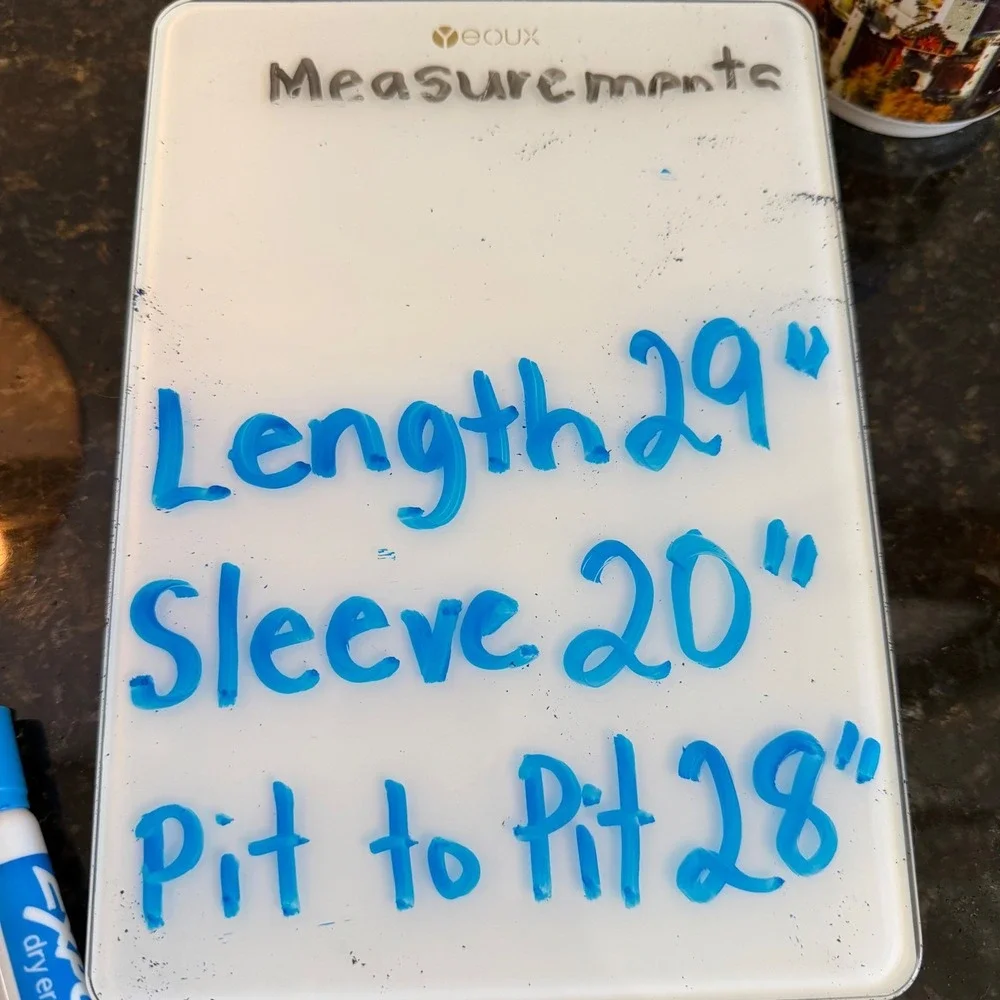 Yeoux
Measurements
Length 29"
Sleeve 20"
Pit to Pit 28"
EXPO
dry er